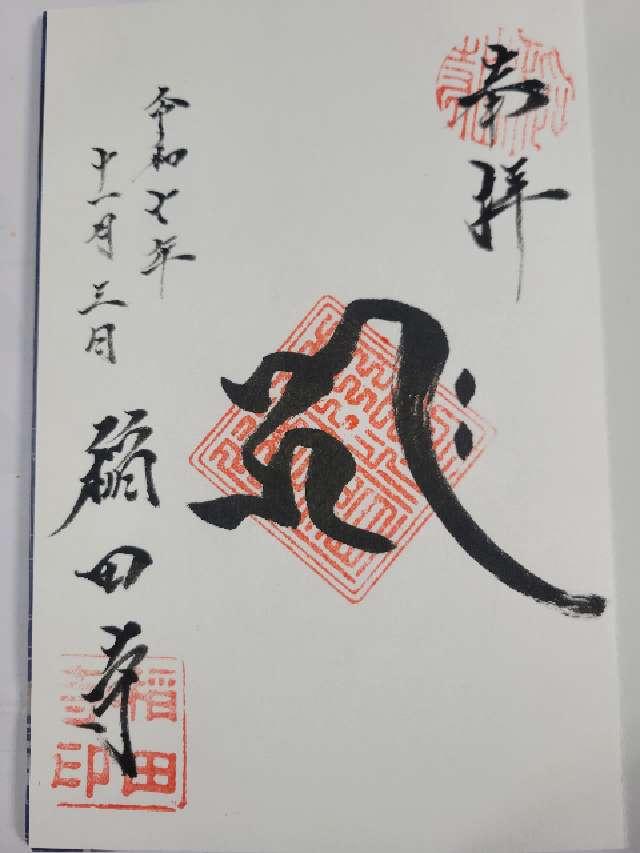 奉拝
𑖮𑖿𑖨𑖱𑖾
令和七年
十一月三日
稲田寺
稲田
寺印